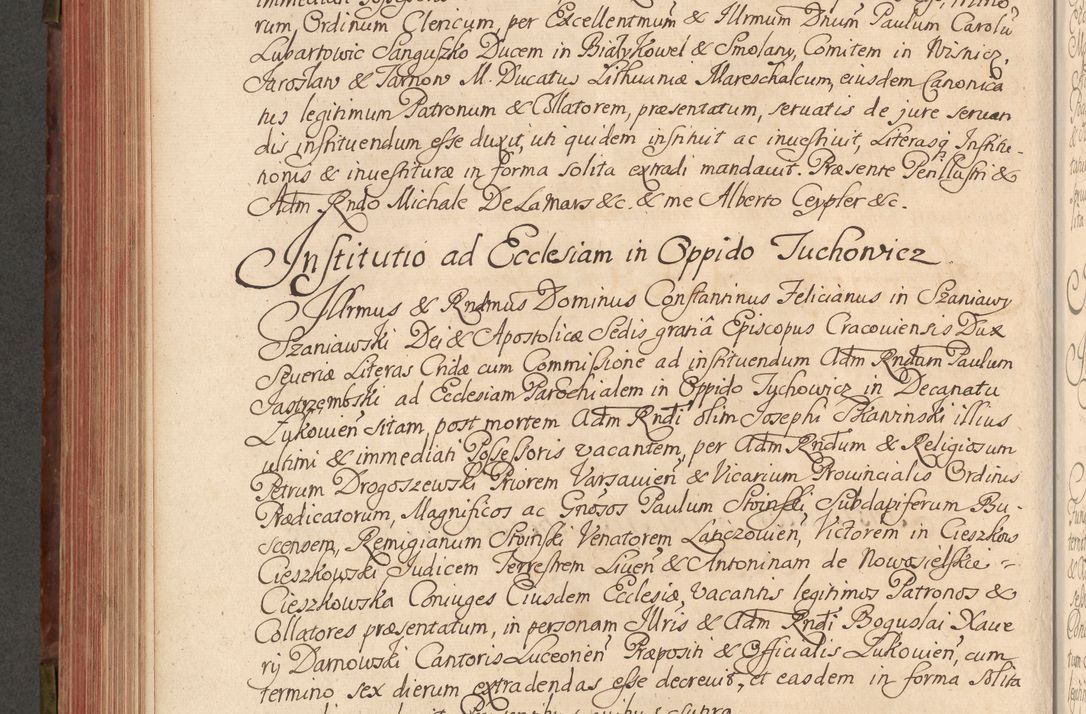 rum, Ordinum Clericum, per Excellentmum & Illrmum Dnum Paulum Carolū
Lubartowic Sanguszko Ducem in Białykowel & Smolany, Comitem in Wisnicz,
Jaroslaw & Tarnow M. Ducatus Lithuaniæ Mareschalcum, eiusdem Canonica
tus legitimum Patronum & Collatorem, præsentatum, seruatis de jure seruan
dis instituendum esse duxit, uti quidem instituit ac inuestiuit, Literasq Institu-
tionis & inuestituræ in forma solita extradi mandauit. Præsente Perillustri &
Adm Rndo Michale De La Mars &c. & me Alberto Ceypler &c.
Institutio ad Ecclesiam in Oppido Tuchowicz
Illrmus & Rndmus Dominus Constantinus Felicianus in Szaniawy
Szaniawski Dei & Apostolicæ Sedis gratiâ Episcopus Cracouiensis Dux
Seueriæ Literas Cridæ cum Commissione ad instituendum Adm Rndum Paulum
Jastrzembski ad Ecclesiam Parochialem in Oppido Tuchowicz in Decanatu
Łukouien sitam, post mortem Adm Rndi olim Josephi Skawinski illius
ultimi & immediati Possessoris vacantem, per Adm Rndum & Religiosum
Petrum Drogoszewski Priorem Varsauien & Vicarium Prouincialis Ordinis
Prædicatorum, Magnificos ac Gnosos Paulum Stoinski, Subdapiferum Bu-
scensem, Remigianum Stoinski Venatorem Lanczouien, Victorem in Cieszkow
Cieszkowski Judicem Terrestrem Liuen & Antoninam de Nowosielskie =
Cieszkowska Coniuges Eiusdem Ecclesiæ vacantis legitimos Patronos &
Collatores præsentatum, in personam Illris & Adm Rndi Boguslai Xaue
rij Darnowski Cantoris Luceonen Præpositi & Officialis Lukouien, cum
termino sex dierum extradendas esse decreuit, et easdem in forma solita